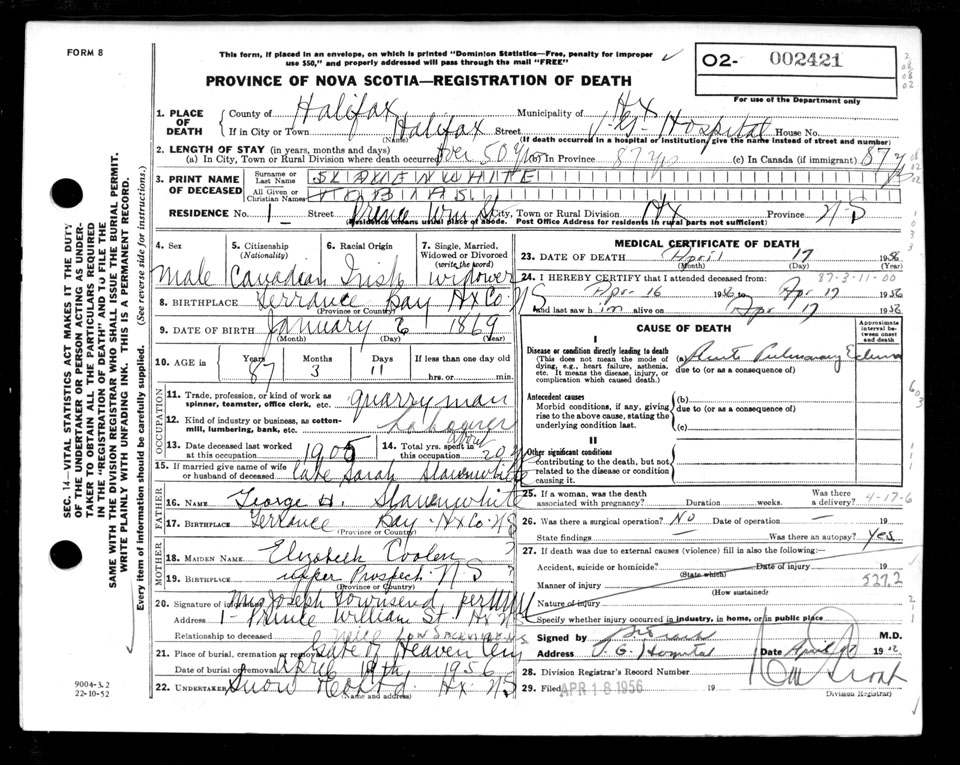 FORM 8
This form, if placed in an envelope, on which is printed "Dominion Statistics—Free, penalty for improper
use $50," and properly addressed will pass through the mail "FREE"
02- 002421
For use of the Department only
PROVINCE OF NOVA SCOTIA—REGISTRATION OF DEATH
1. PLACE OF DEATH
County of Halifax Municipality of Hx
If in City or Town Halifax Street V.G. Hospital House No.
(Name) (If death occurred in a hospital or institution, give the name instead of street and number)
2. LENGTH OF STAY (in years, months and days)
(a) In City, Town or Rural Division where death occurred Over 50 yrs (b) In Province 87 yrs (c) In Canada (if immigrant) 87 y
3. PRINT NAME OF DECEASED
Surname or Last Name SLAUENWHITE
All Given or Christian Names TOBIAS
RESIDENCE No. 1 Street Prince Wm St City, Town or Rural Division Hx Province N-S
(Residence means usual place of abode. Post Office Address for residents in rural parts not sufficient)
4. Sex
Male
5. Citizenship (Nationality)
Canadian
6. Racial Origin
Irish
7. Single, Married, Widowed or Divorced (write the word)
widower
8. BIRTHPLACE Terrance Bay Hx Co NS
(Province or Country)
9. DATE OF BIRTH January 6 1869
(Month) (Day) (Year)
10. AGE in
Years 87
Months 3
Days 11
If less than one day old
hrs. or min.
OCCUPATION
11. Trade, profession, or kind of work as spinner, teamster, office clerk, etc. quarryman
12. Kind of industry or business, as cotton-mill, lumbering, bank, etc. Labourer
13. Date deceased last worked at this occupation 1905
14. Total yrs. spent in this occupation about 20 y
15. If married give name of wife or husband of deceased Late Sarah Slauenwhite
FATHER
16. NAME George H. Slauenwhite
17. BIRTHPLACE Terrance Bay Hx Co NS
(Province or Country)
MOTHER
18. MAIDEN NAME Elizabeth Coolen ?
19. BIRTHPLACE upper Prospect N S ?
(Province or Country)
20. Signature of informant Mrs Joseph Townsend per
Address 1- Prince William St Hx NS
Relationship to deceased niece
21. Place of burial, cremation or removal Gate of Heaven Cem
Date of burial or removal April 19th 1956
22. UNDERTAKER Snow & Co Ltd Hx NS
(Name and address)
MEDICAL CERTIFICATE OF DEATH
23. DATE OF DEATH April 17 1956
(Month) (Day) (Year)
24. I HEREBY CERTIFY that I attended deceased from: 87-3-11-00
Apr 16 1956 to Apr 17 1956
and last saw him alive on Apr 17 1956
CAUSE OF DEATH
Approximate interval between onset and death
I
Disease or condition directly leading to death
(This does not mean the mode of dying, e.g., heart failure, asthenia, etc. It means the disease, injury, or complication which caused death.)
(a) Acute Pulmonary Edema
due to (or as a consequence of)
Antecedent causes
Morbid conditions, if any, giving rise to the above cause, stating the underlying condition last.
(b)
due to (or as a consequence of)
(c)
II
Other significant conditions
contributing to the death, but not related to the disease or condition causing it.
25. If a woman, was the death associated with pregnancy? Duration weeks. Was there a delivery? 4-17-6
26. Was there a surgical operation? No Date of operation — 19
State findings — Was there an autopsy? Yes
27. If death was due to external causes (violence) fill in also the following:—
Accident, suicide or homicide? Date of injury 19
(State which)
Manner of injury 527.2
(How sustained)
Nature of injury
Specify whether injury occurred in industry, in home, or in public place
Signed by M.D.
Address V.G. Hospital Date April 19
28. Division Registrar's Record Number
29. Filed APR 18 1956 19
Division Registrar)
SEC. 14—VITAL STATISTICS ACT MAKES IT THE DUTY
OF THE UNDERTAKER OR PERSON ACTING AS UNDER-
TAKER TO OBTAIN ALL THE PARTICULARS REQUIRED
IN THE "REGISTRATION OF DEATH" AND TO FILE THE
SAME WITH THE DIVISION REGISTRAR WHO SHALL ISSUE THE BURIAL PERMIT.
WRITE PLAINLY WITH UNFADING INK. THIS IS A PERMANENT RECORD.
Every item of information should be carefully supplied. (See reverse side for instructions.)
9004-3.2
22-10-52